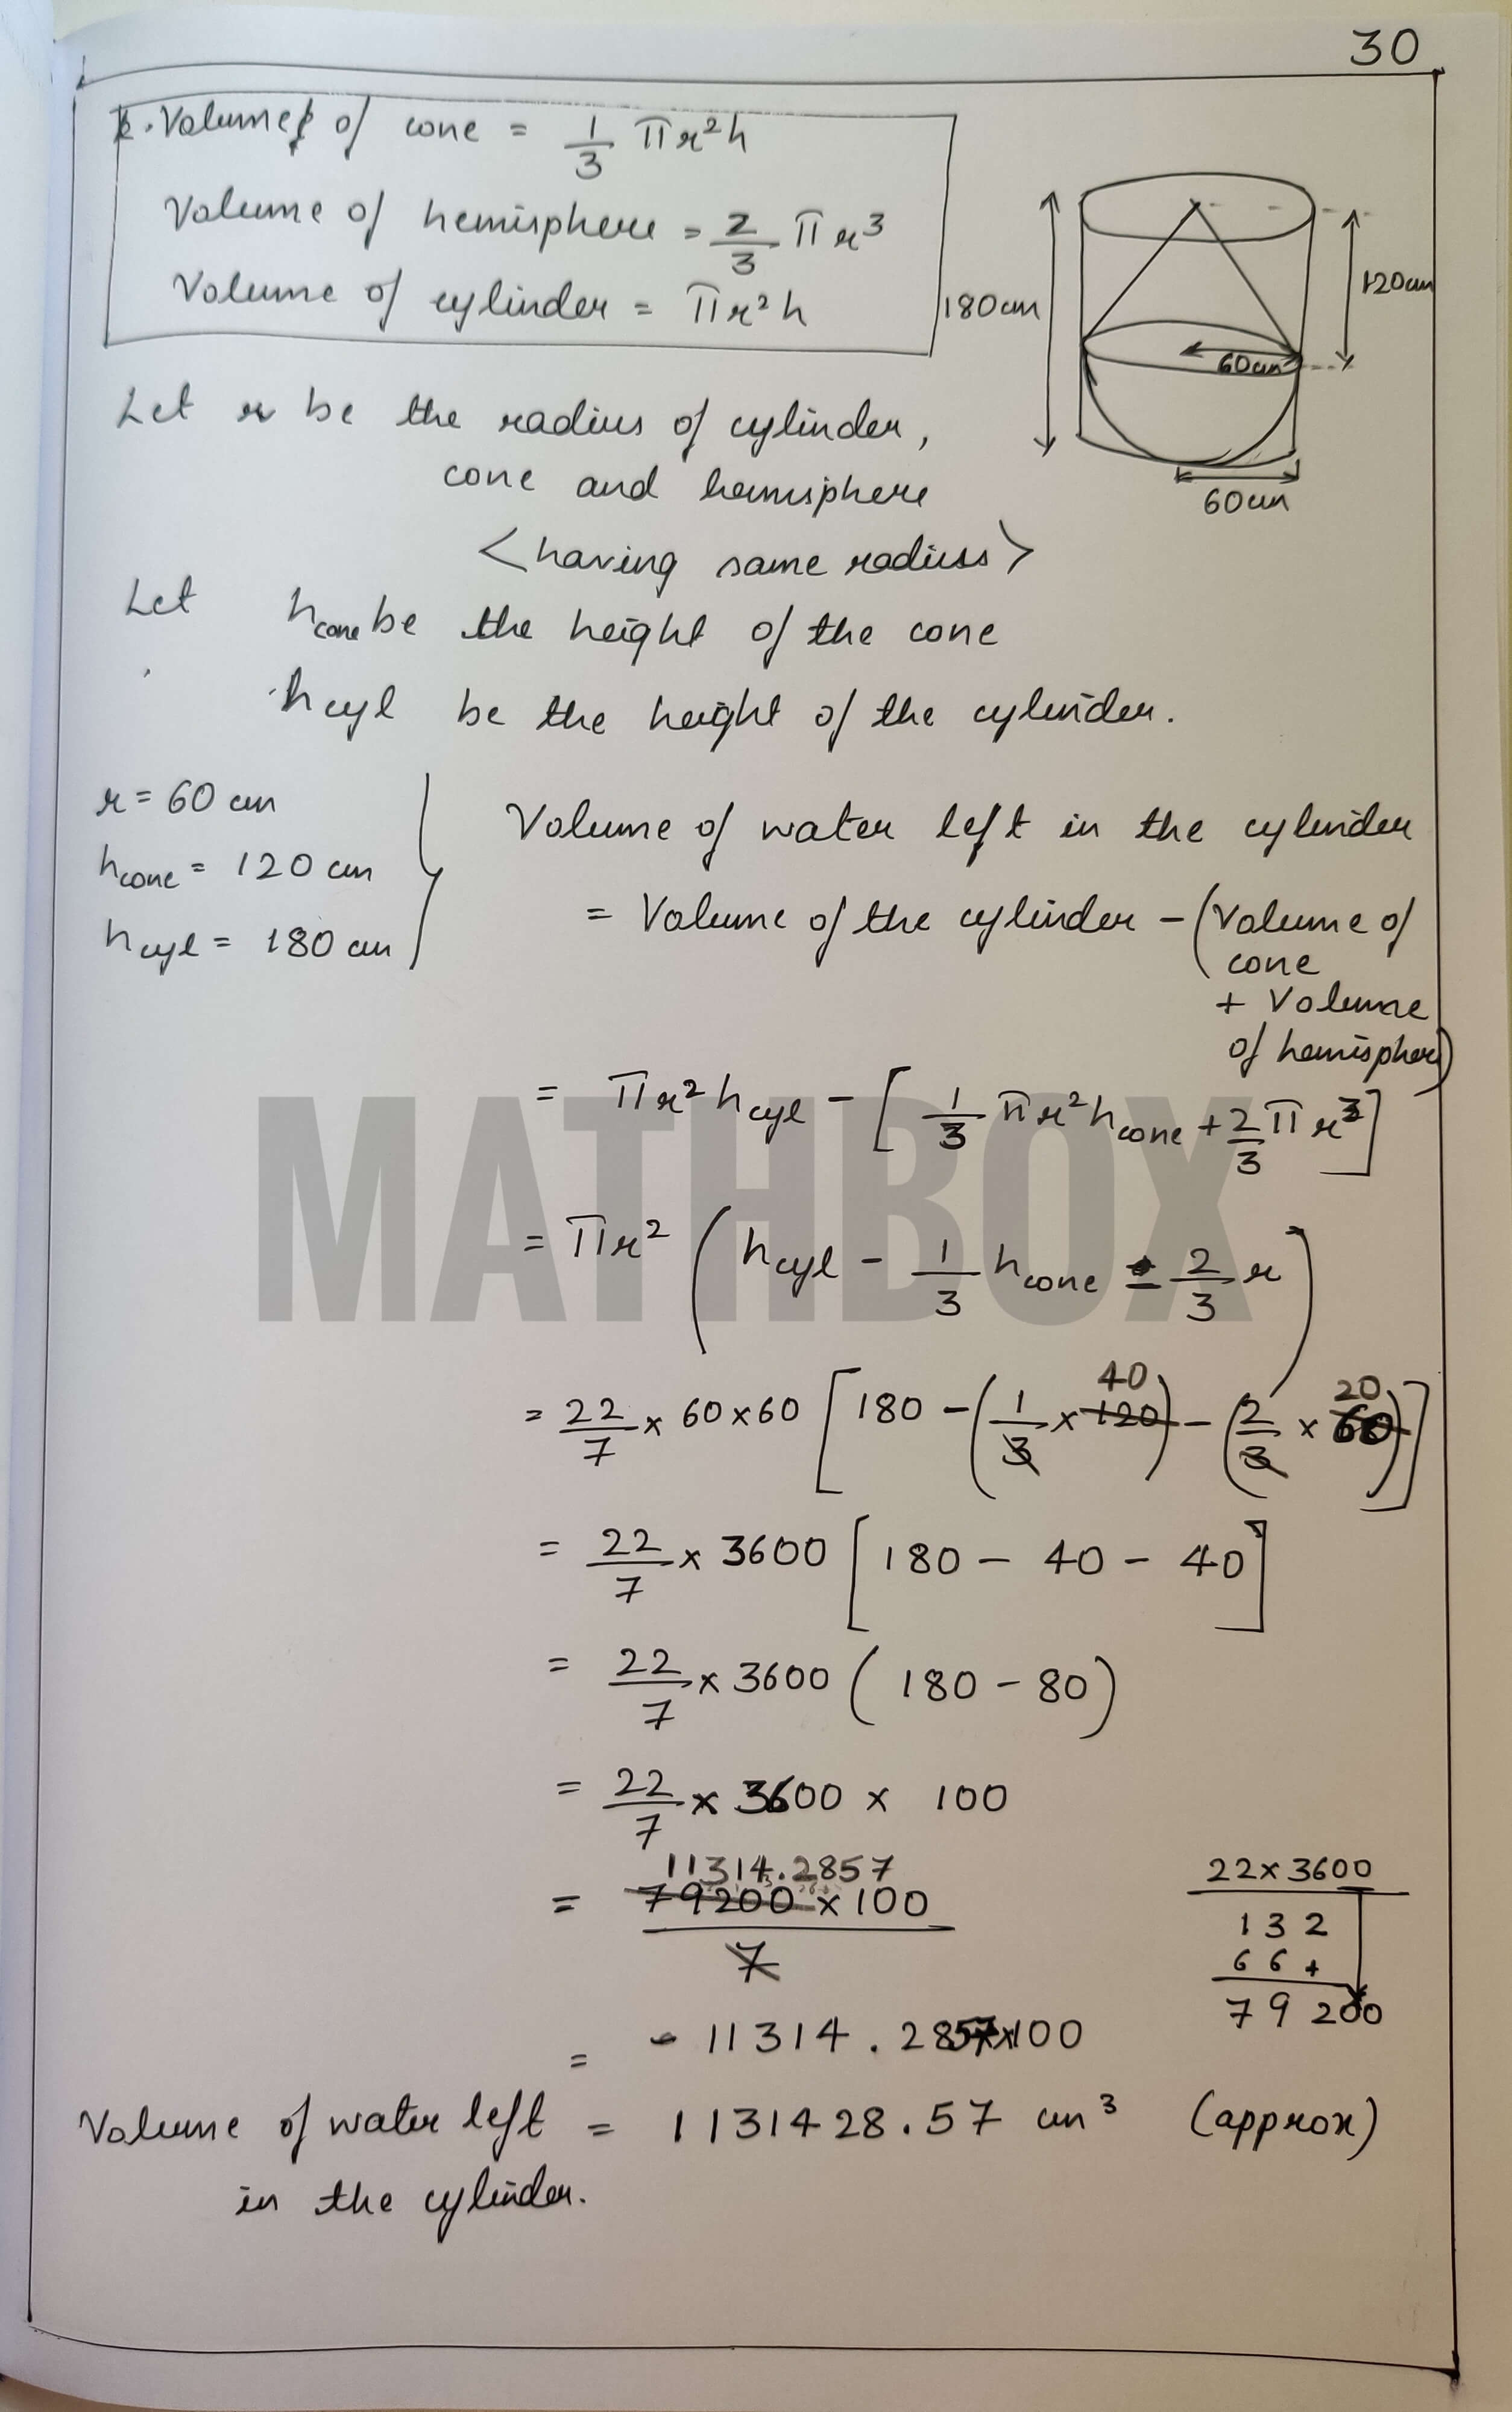 30
Volume of cone = 1/3 πr²h
Volume of hemisphere = 2/3 πr³
Volume of cylinder = πr²h
180cm
120cm
60cm
60cm
Let r be the radius of cylinder,
cone and hemisphere
<having same radius>
Let h cone be the height of the cone
h cyl be the height of the cylinder.
r = 60 cm
h cone = 120 cm
h cyl = 180 cm
Volume of water left in the cylinder
= Volume of the cylinder - (Volume of
cone
+ Volume
of hemisphere)
= πr² h cyl - [1/3 πr² h cone + 2/3 πr³]
= πr² (h cyl - 1/3 h cone - 2/3 r)
= 22/7 × 60×60 [180 - (1/3 × 120) - (2/3 × 60)]
40
20
= 22/7 × 3600 [180 - 40 - 40]
= 22/7 × 3600 (180 - 80)
= 22/7 × 3600 × 100
11314.2857
= 79200 × 100
7
22×3600
132
66+
79200
= 11314.2857×100
Volume of water left = 1131428.57 cm³ (approx)
in the cylinder.
MATHBOX